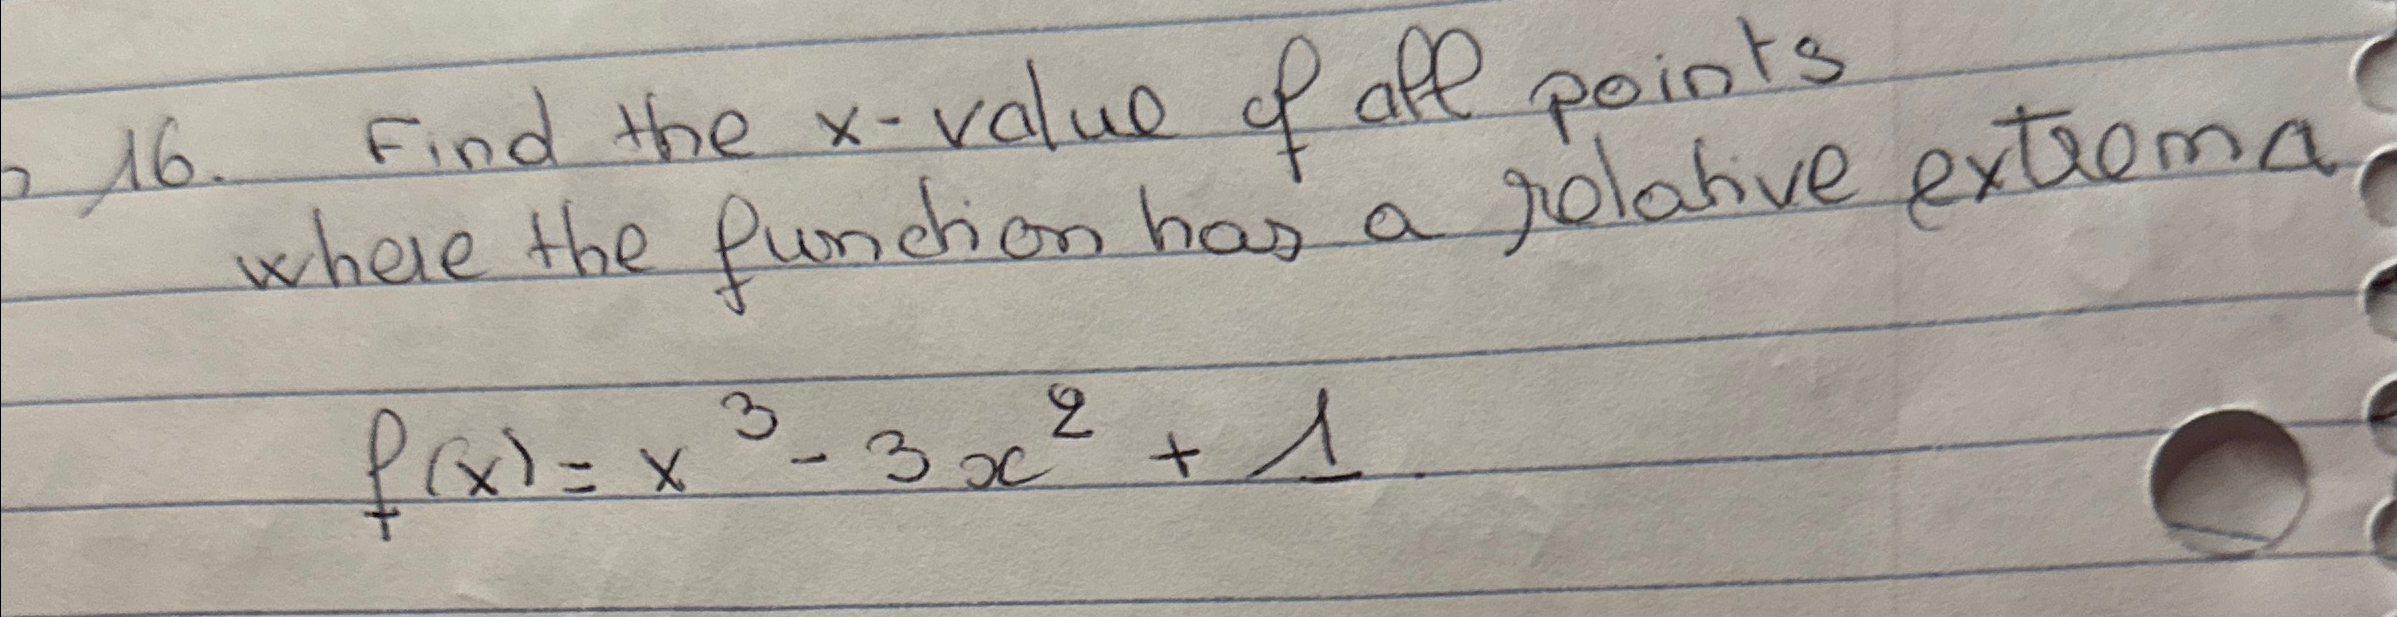 16. Find the x-value of all points
where the function has a relative extrema
f(x) = x³ - 3x² + 1